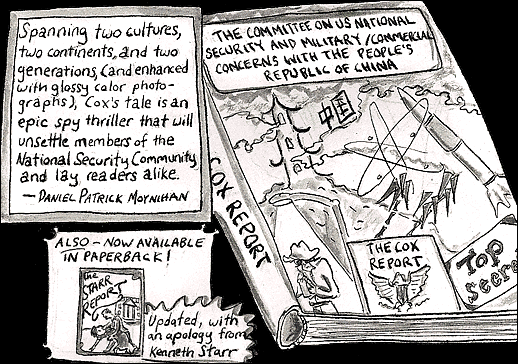 Spanning two cultures,
two continents, and two
generations, (and enhanced
with glossy color photo-
graphs), Cox's tale is an
epic spy thriller that will
unsettle members of the
National Security Community
and lay readers alike.
— DANIEL PATRICK MOYNIHAN
THE COMMITTEE ON US NATIONAL
SECURITY AND MILITARY/COMMERCIAL
CONCERNS WITH THE PEOPLE'S
REPUBLIC OF CHINA
中国
COX REPORT
THE COX
REPORT
Top
Secre
ALSO - NOW AVAILABLE
IN PAPERBACK!
the
STARR
REPORT
Updated, with
an apology from
Kenneth Starr